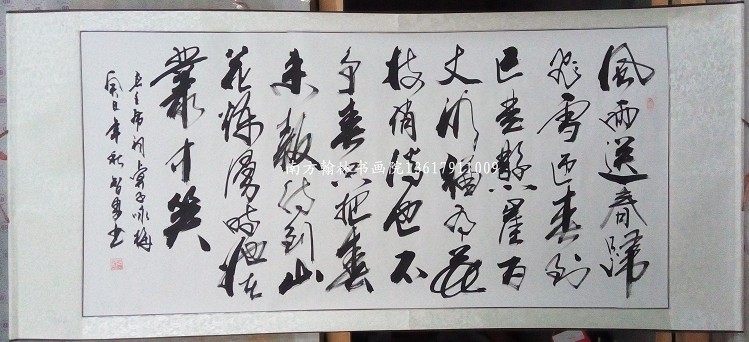 風雨送春歸
飛雪迎春到
已是懸崖百
丈冰猶有花
枝俏俏也不
争春只把春
来報待到山
花爛漫時她在
叢中笑
毛主席词卜算子咏梅
年秋书
南方翰林书画院14617911009